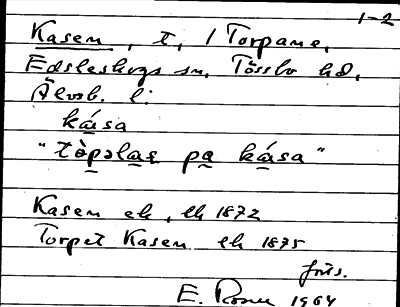 1-2
Kasen, t, / Torpane,
Edsleskogs sn, Tössbo hd,
Älvsb. l.
kása
"tòpəlas pa kása"
Kasen ek, lk 1872
Torpet Kasen ek 1875
forts.
E. 1964